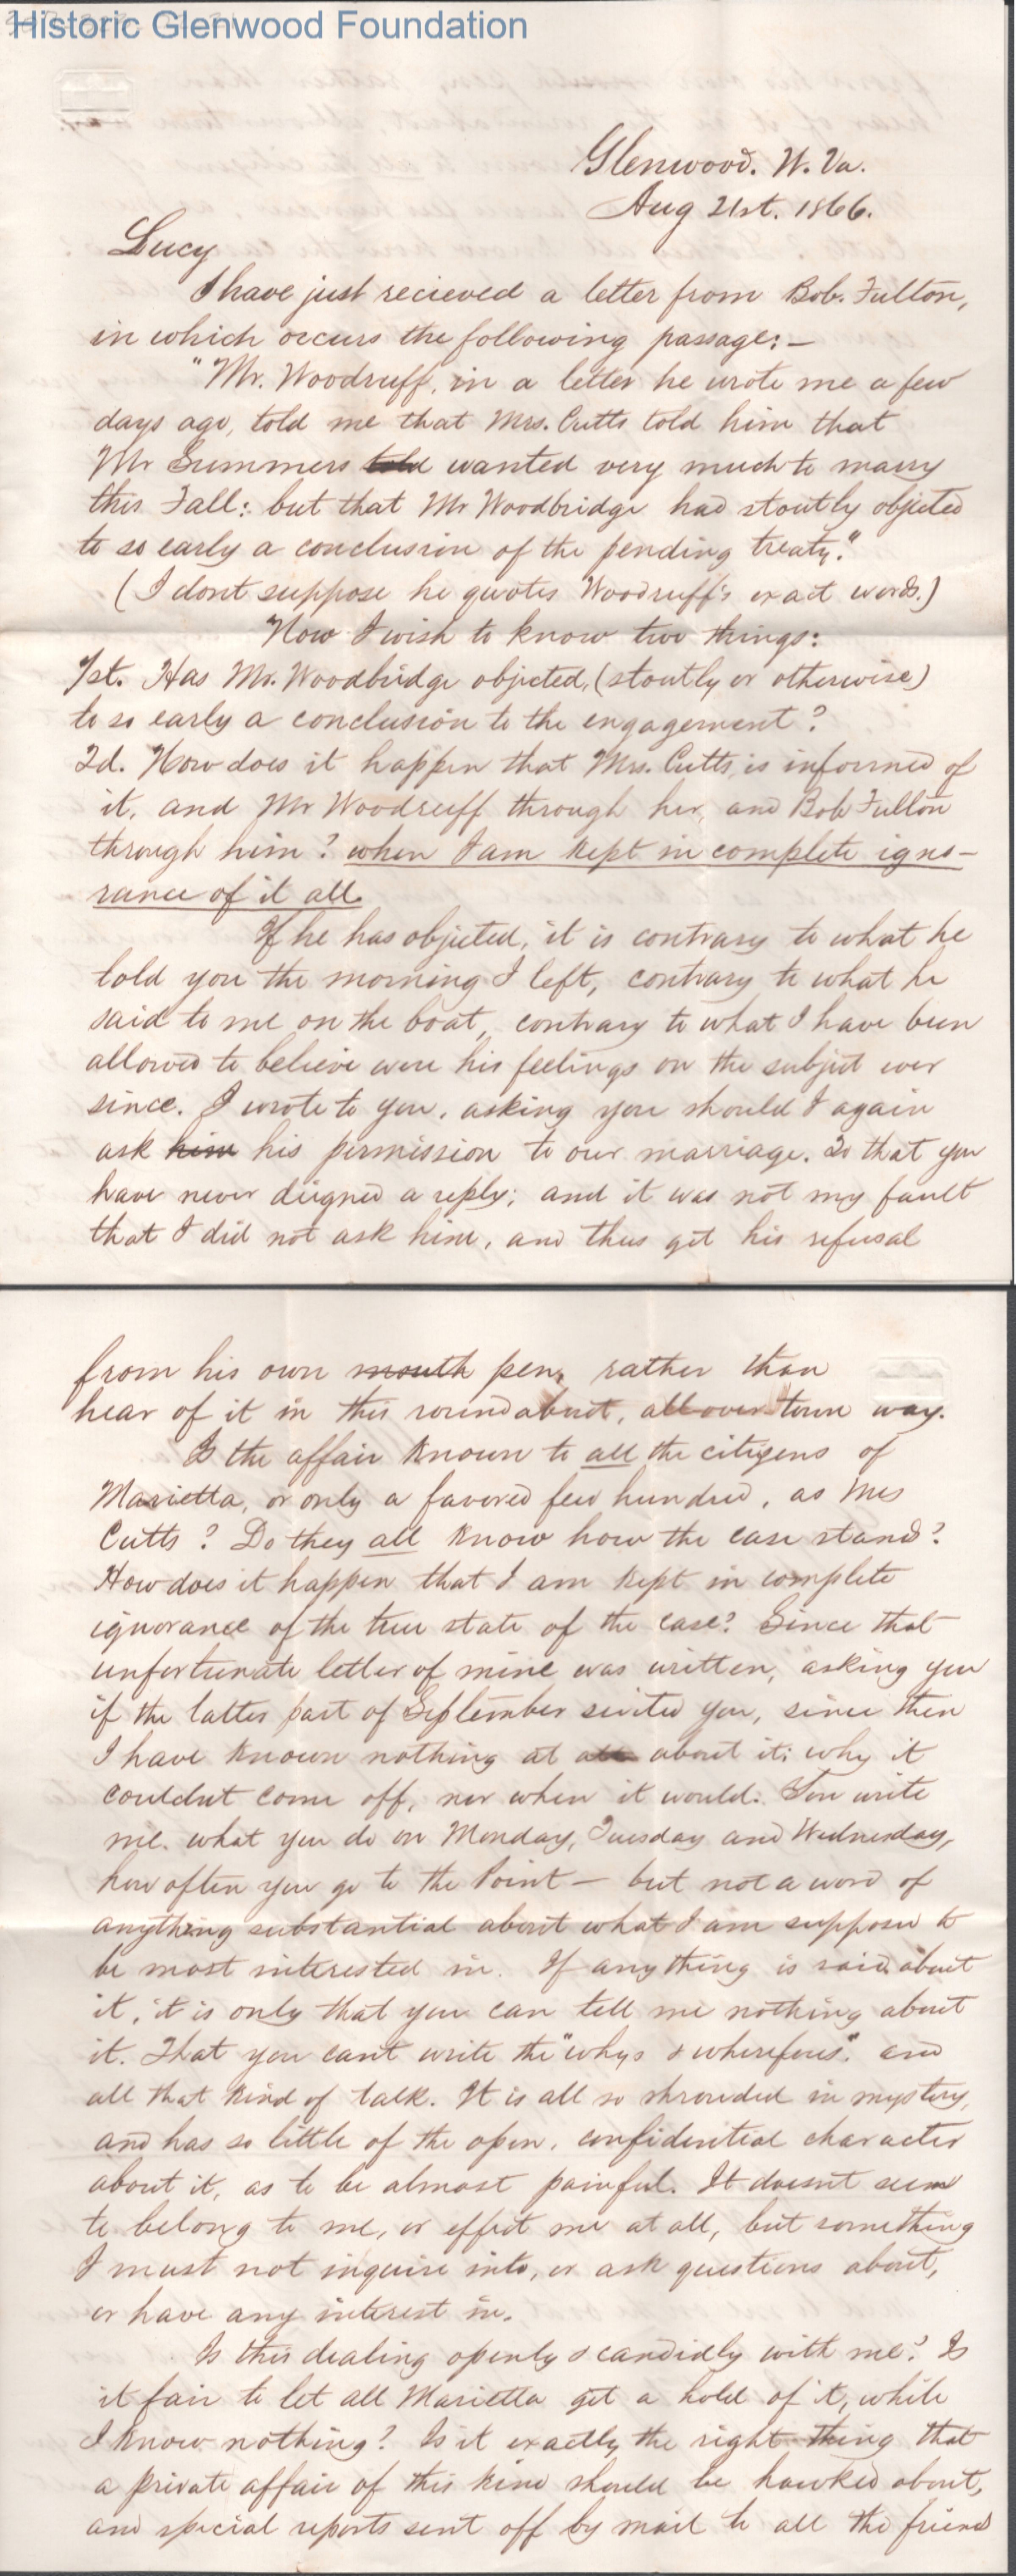 Historic Glenwood Foundation
Glenwood. W. Va.
Aug 21st. 1866.
Lucy
I have just recieved a letter from Bob. Fulton,
in which occurs the following passage:—
"Mr. Woodruff, in a letter he wrote me a few
days ago, told me that Mrs. Cutts told him that
Mr Summers told wanted very much to marry
this Fall: but that Mr Woodbridge had stoutly objected
to so early a conclusion of the pending treaty."
(I dont suppose he quotes Woodruff's exact words.)
Now I wish to know two things:
1st. Has Mr. Woodbridge objected, (stoutly or otherwise)
to so early a conclusion to the engagement?
2d. How does it happen that Mrs. Cutts, is informed of
it, and Mr Woodruff through her, and Bob Fulton
through him? when I am kept in complete igno-
rance of it all.
If he has objected, it is contrary to what he
told you the morning I left, contrary to what he
said to me on the boat, contrary to what I have been
allowed to believe were his feelings on the subject ever
since. I wrote to you, asking you should I again
ask him his permission to our marriage. To that you
have never deigned a reply; and it was not my fault
that I did not ask him, and thus get his refusal
from his own mouth pen, rather than
hear of it in this roundabout, all over town way.
Is the affair known to all the citizens of
Marietta, or only a favored few hundred, as Mrs
Cutts? Do they all know how the case stand?
How does it happen that I am kept in complete
ignorance of the true state of the case? Since that
unfortunate letter of mine was written, asking you
if the latter part of September suited you, since then
I have known nothing at all about it: why it
couldnt come off, nor when it would. You write
me. what you do on Monday, Tuesday and Wednesday,
how often you go to the Point— but not a word of
anything substantial about what I am supposed to
be most interested in. If any thing is said about
it, it is only that you can tell me nothing about
it. That you cant write the "whys & wherefores". and
all that kind of talk. It is all so shrouded in mystery,
and has so little of the open, confidential character
about it, as to be almost painful. It doesnt seem
to belong to me, or effect me at all, but something
I must not inquire into, or ask questions about,
or have any interest in.
Is this dealing openly & candidly with me? Is
it fair to let all Marietta get a hold of it, while
I know nothing? Is it exactly the right thing that
a private affair of this kind should be hawked about,
and special reports sent off by mail to all the friend